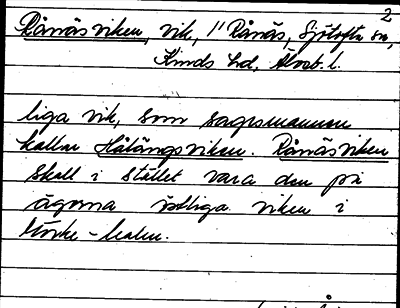 2
Rånäsviken, vik, 1" Rånäs, Sjötofta sn,
Kinds hd, Älvsb. l.
liga vik, som sagesmannen
kallar Hålängsviken. Rånäsviken
skall i stället vara den på
ägorna östliga viken i